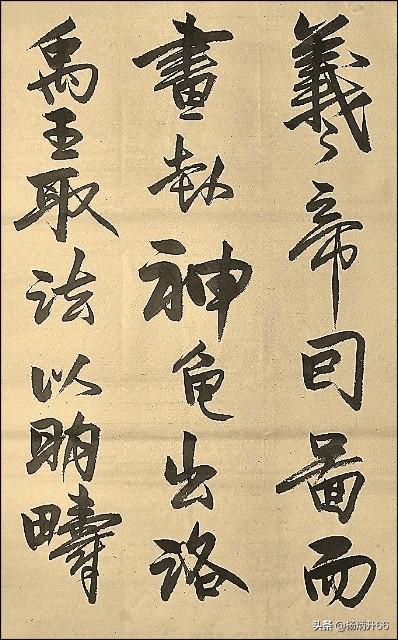 羲帝因圖而
畫卦神龟出洛
禹王取法以明疇
头条 @杨炳升66